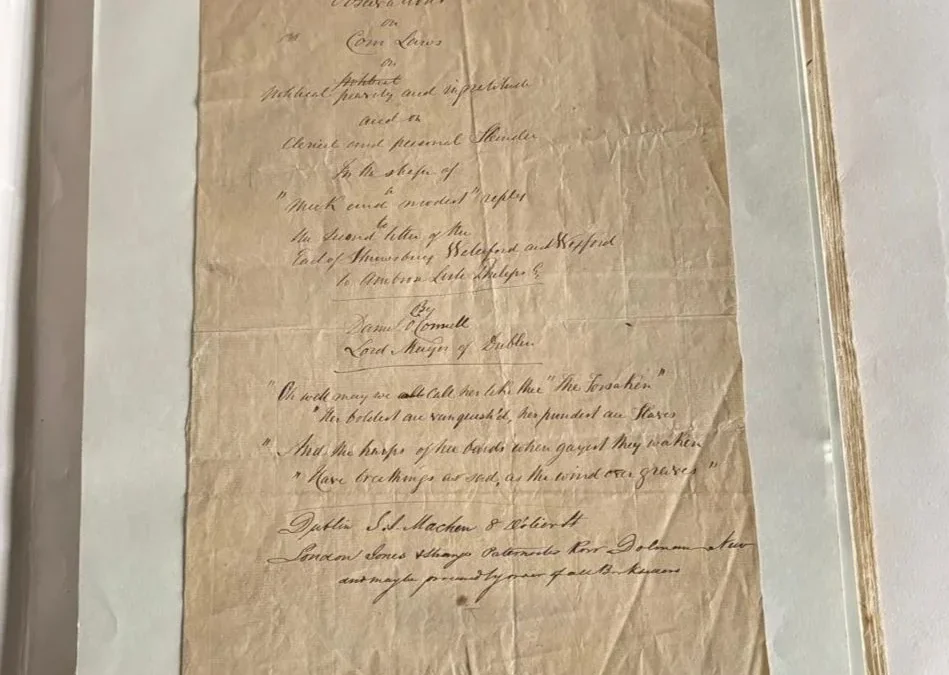 Observations
on
Corn Laws
on
Political pravity and ingratitude
and on
Clerical and personal Slander
In the shape of
a
"Meek and modest" reply
to
the second letter of the
Earl of Shrewsbury Waterford and Wexford
to Ambrose Lisle Philips E
By
Daniel O'Connell
Lord Mayor of Dublin
"Oh well may we call her like thee "The Forsaken"
"Her boldest are vanquish'd, her proudest are Slaves
"And the harps of her bards when gayest they waken
"Have breathings as sad, as the wind over graves"
Dublin S.J. Machen 8 D'olier St
London Jones & Paternoster Row Dolman New
and may be procured by order of all Booksellers